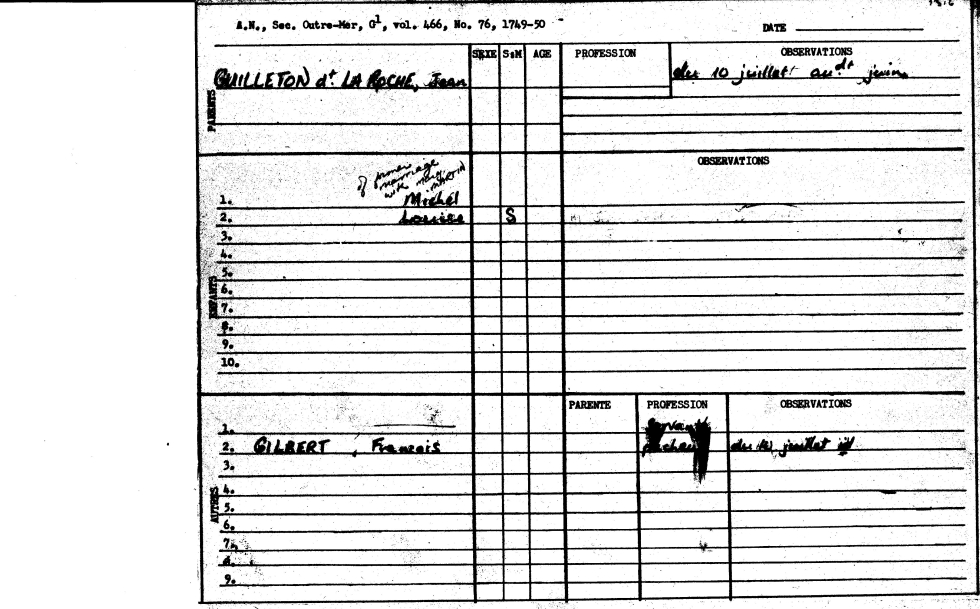 A.N., Sec. Outre-Mer, G1, vol. 466, No. 76, 1749-50
DATE
SEXE S&M AGE PROFESSION OBSERVATIONS
PARENTS
GUILLETON dt LA ROCHE, Jean
du 10 juillet au dt juin
OBSERVATIONS
of former
marriage
with
ENFANTS
1. Michel
2. Louise S
3.
4.
5.
6.
7.
8.
9.
10.
PARENTE PROFESSION OBSERVATIONS
AUTRES
1.
2. GILBERT, Francois du juillet
3.
4.
5.
6.
7.
8.
9.